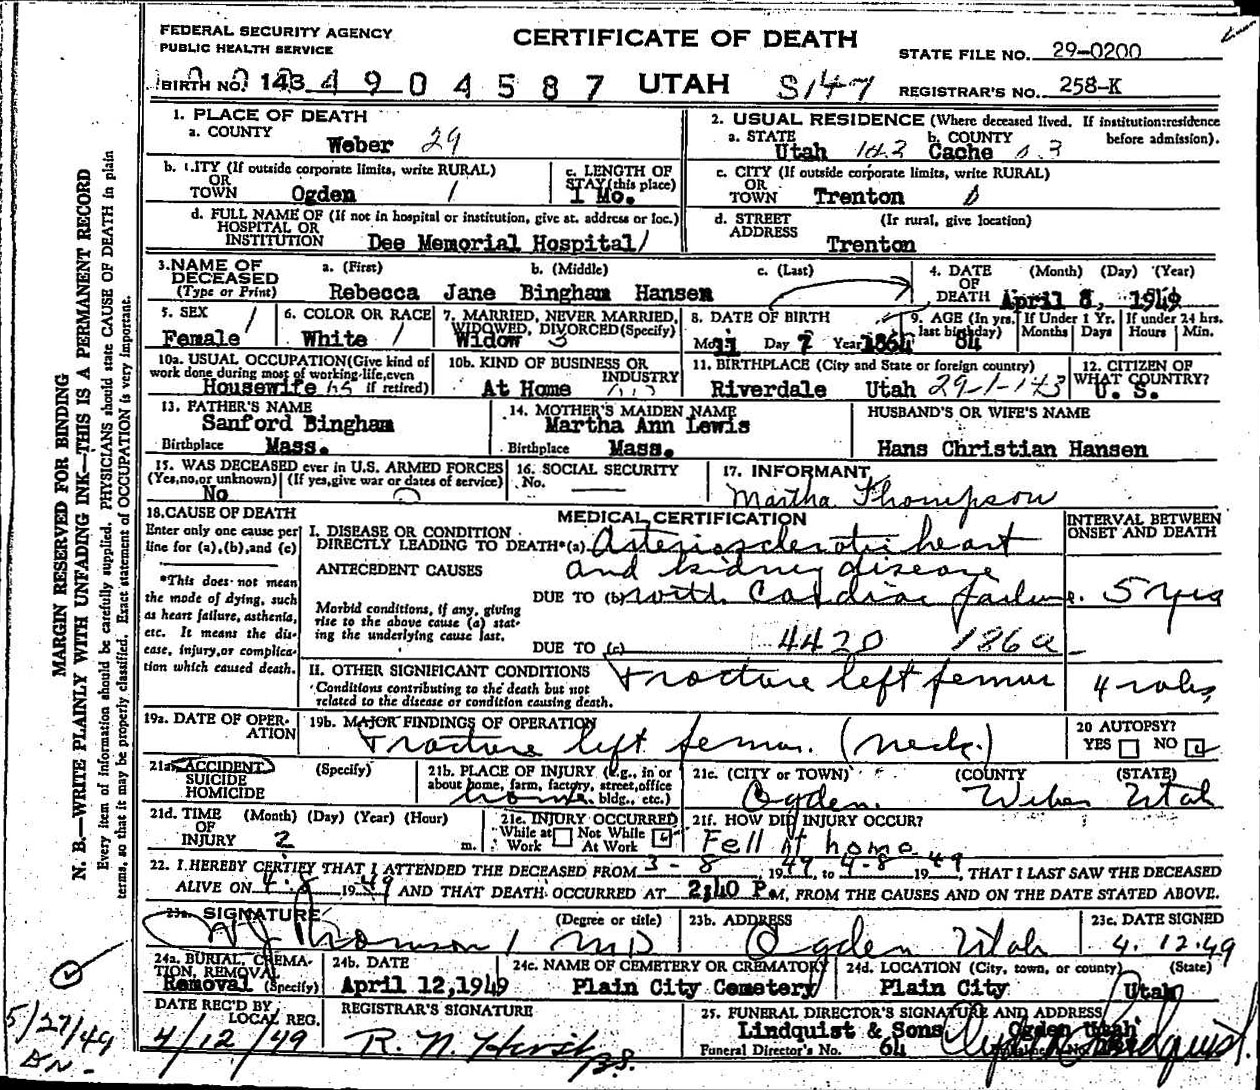 FEDERAL SECURITY AGENCY
PUBLIC HEALTH SERVICE
CERTIFICATE OF DEATH
STATE FILE NO. 29-0200
BIRTH NO. 143 4 9 0 4 5 8 7 UTAH S147
REGISTRAR'S NO. 258-K
MARGIN RESERVED FOR BINDING
N. B.—WRITE PLAINLY WITH UNFADING INK—THIS IS A PERMANENT RECORD
Every item of information should be carefully supplied. PHYSICIANS should state CAUSE OF DEATH in plain
terms, so that it may be properly classified. Exact statement of OCCUPATION is very important.
1. PLACE OF DEATH
a. COUNTY
Weber 29
2. USUAL RESIDENCE (Where deceased lived. If institution:residence
before admission).
a. STATE b. COUNTY
Utah Cache
b. CITY (If outside corporate limits, write RURAL)
OR
TOWN Ogden 1
c. LENGTH OF
STAY (this place)
1 Mo.
c. CITY (If outside corporate limits, write RURAL)
OR
TOWN Trenton 0
d. FULL NAME OF (If not in hospital or institution, give st. address or loc.)
HOSPITAL OR
INSTITUTION Dee Memorial Hospital
d. STREET (If rural, give location)
ADDRESS
Trenton
3. NAME OF DECEASED
(Type or Print)
a. (First) b. (Middle) c. (Last)
Rebecca Jane Bingham Hansen
4. DATE OF DEATH (Month) (Day) (Year)
April 8, 1949
5. SEX
Female
6. COLOR OR RACE
White
7. MARRIED, NEVER MARRIED,
WIDOWED, DIVORCED (Specify)
Widow 3
8. DATE OF BIRTH
Mo. 11 Day 7 Year 1864
9. AGE (In yrs. last birthday) 84
If Under 1 Yr. Months Days
If under 24 hrs. Hours Min.
10a. USUAL OCCUPATION (Give kind of
work done during most of working life, even
if retired)
Housewife
10b. KIND OF BUSINESS OR
INDUSTRY
At Home
11. BIRTHPLACE (City and State or foreign country)
Riverdale Utah 29-1-143
12. CITIZEN OF
WHAT COUNTRY?
U. S.
13. FATHER'S NAME
Sanford Bingham
Birthplace Mass.
14. MOTHER'S MAIDEN NAME
Martha Ann Lewis
Birthplace Mass.
HUSBAND'S OR WIFE'S NAME
Hans Christian Hansen
15. WAS DECEASED ever in U.S. ARMED FORCES
(Yes, no, or unknown) (If yes, give war or dates of service)
No
16. SOCIAL SECURITY
No.
17. INFORMANT
Martha Thompson
18. CAUSE OF DEATH
Enter only one cause per
line for (a), (b), and (c)
*This does not mean
the mode of dying, such
as heart failure, asthenia,
etc. It means the dis-
ease, injury, or complica-
tion which caused death.
MEDICAL CERTIFICATION
INTERVAL BETWEEN
ONSET AND DEATH
I. DISEASE OR CONDITION
DIRECTLY LEADING TO DEATH*(a) Asteriosclerotic heart
ANTECEDENT CAUSES and kidney disease
DUE TO (b) with Cardiac failure. 5 yrs
Morbid conditions, if any, giving
rise to the above cause (a) stat-
ing the underlying cause last.
DUE TO (c) 4420 186a
II. OTHER SIGNIFICANT CONDITIONS
Conditions contributing to the death but not
related to the disease or condition causing death.
Fracture left femur
19a. DATE OF OPER-
ATION
19b. MAJOR FINDINGS OF OPERATION
Fracture left femur. (neck.)
20 AUTOPSY?
YES NO
21a. ACCIDENT (Specify)
SUICIDE
HOMICIDE
21b. PLACE OF INJURY (e.g., in or
about home, farm, factory, street, office
bldg., etc.)
home
21c. (CITY or TOWN) (COUNTY (STATE)
Ogden. Weber Utah
21d. TIME (Month) (Day) (Year) (Hour)
OF
INJURY 2 m.
21e. INJURY OCCURRED
While at Work Not While At Work
21f. HOW DID INJURY OCCUR?
Fell at home
22. I HEREBY CERTIFY THAT I ATTENDED THE DECEASED FROM 3-8, 1949, to 4-8 1949, THAT I LAST SAW THE DECEASED
ALIVE ON 4-8 1949 AND THAT DEATH OCCURRED AT 2:40 P.M, FROM THE CAUSES AND ON THE DATE STATED ABOVE.
23a. SIGNATURE (Degree or title)
Thomson MD
23b. ADDRESS
Ogden Utah
23c. DATE SIGNED
4.12.49
24a. BURIAL, CREMA-
TION, REMOVAL
(Specify)
Removal
24b. DATE
April 12, 1949
24c. NAME OF CEMETERY OR CREMATORY
Plain City Cemetery
24d. LOCATION (City, town, or county) (State)
Plain City Utah
DATE REC'D BY
LOCAL REG.
4/12/49
REGISTRAR'S SIGNATURE
25. FUNERAL DIRECTOR'S SIGNATURE AND ADDRESS
Lindquist & Sons Ogden Utah
Funeral Director's No. 64
5/27/49